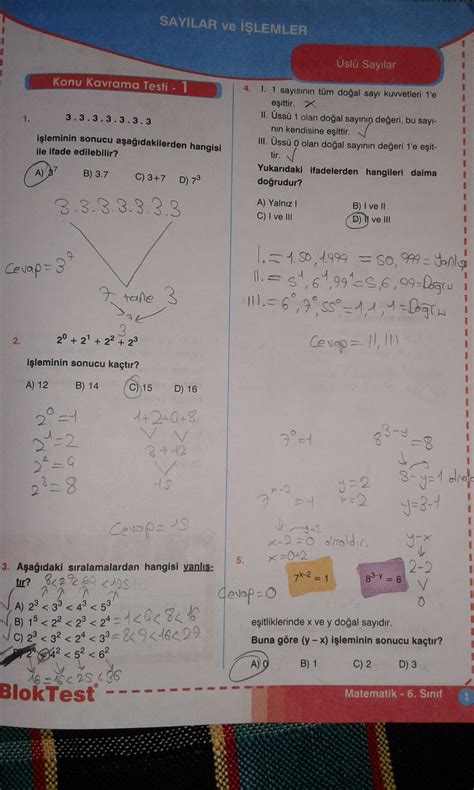 SAYILAR ve İŞLEMLER
Üslü Sayılar
Konu Kavrama Testi - 1
1. 3 . 3 . 3 . 3 . 3 . 3 . 3
işleminin sonucu aşağıdakilerden hangisi
ile ifade edilebilir?
A) 3⁷ B) 3.7 C) 3+7 D) 7³
3.3.3.3.3.3.3
Cevap = 3⁷
7 tane 3
3
7
2. 2⁰ + 2¹ + 2² + 2³
işleminin sonucu kaçtır?
A) 12 B) 14 C) 15 D) 16
2⁰=1
2¹=2
2²=4
2³=8
1+2+4+8
3+12
15
Cevap=15
3. Aşağıdaki sıralamalardan hangisi yanlış-
tır?
8<27<64<125
A) 2³ < 3³ < 4³ < 5³
B) 1⁵ < 2² < 2³ < 2⁴ = 1<4<8<16
C) 2³ < 3² < 2⁴ < 3³ = 8<9<16<29
4² < 5² < 6²
16=16<25<36
BlokTest
4. I. 1 sayısının tüm doğal sayı kuvvetleri 1'e
eşittir.
II. Üssü 1 olan doğal sayının değeri, bu sayı-
nın kendisine eşittir.
III. Üssü 0 olan doğal sayının değeri 1'e eşit-
tir.
Yukarıdaki ifadelerden hangileri daima
doğrudur?
A) Yalnız I B) I ve II
C) I ve III D) II ve III
I.=1.50, 1.999 = 50, 999 = Yanlış
II.= 5¹, 6¹, 99¹ = 5, 6, 99 = Doğru
III.= 6⁰, 7⁰, 55⁰ = 1, 1, 1 = Doğru
Cevap = II, III
7⁰=1 8³⁻ʸ=8
7ˣ⁻²=1
y=2
x=2
3-y=1
y=3-1
x-2=0 olmalıdır.
x=0+2
y-x
2-2
0
5. 7ˣ⁻² = 1 8³⁻ʸ = 8
Cevap=0
eşitliklerinde x ve y doğal sayıdır.
Buna göre (y – x) işleminin sonucu kaçtır?
A) 0 B) 1 C) 2 D) 3
Matematik - 6. Sınıf 1